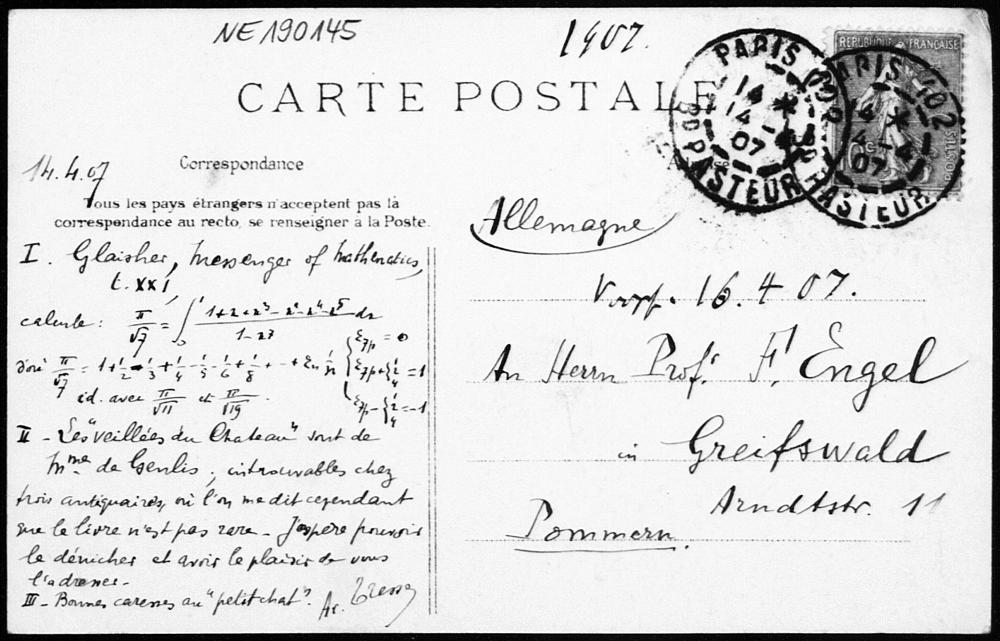 NE190145
1907.
CARTE POSTALE
REPUBLIQUE FRANÇAISE
POSTES
PARIS 102
14 *
14 - 4
07
BD PASTEUR
PARIS 102
14 *
14 - 4
07
BD PASTEUR
14.4.07
Correspondance
Tous les pays étrangers n'acceptent pas là
correspondance au recto, se renseigner à la Poste.
I. Glaisher, Messenger of Mathematics,
t. XXI,
calcule : π/√7 = ∫₀¹ (1+x+x³-x²-x⁴-x⁵)/(1-x⁷) dx
d'où π/√7 = 1+1/2-1/3+1/4-1/5-1/6+1/8+··+εn 1/n
ε7p = 0
ε7p+{1 2 4 = 1
ε7p-{1 2 4 = -1
id. avec π/√11 et π/√19.
II - Les "veillées du Chateau" sont de
Mme de Genlis; introuvables chez
trois antiquaires, où l'on me dit cependant
que le livre n'est pas rare - J'espère pouvoir
le dénicher et avoir le plaisir de vous
l'adresser -
III - Bonnes caresses au "petit chat".
Ar. Tresse
Allemagne
16.4.07.
An Herrn Prof. F. Engel
in Greifswald
Arndtstr. 11
Pommern.